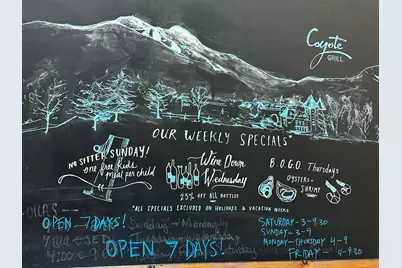 Coyote
GRILL
OUR WEEKLY SPECIALS
NO SITTER SUNDAY!
one free kids
meal per child
Wine Down
Wednesday
25% OFF ALL BOTTLES
B.O.G.O. Thursdays
OYSTERS &
SHRIMP
*ALL SPECIALS EXCLUDED ON HOLIDAYS & VACATION WEEKS
OPEN 7 DAYS!
OPEN 7 DAYS!
SATURDAY - 3-9:30
SUNDAY - 3-9
MONDAY-THURSDAY 4-9
FRIDAY - 4-9:30